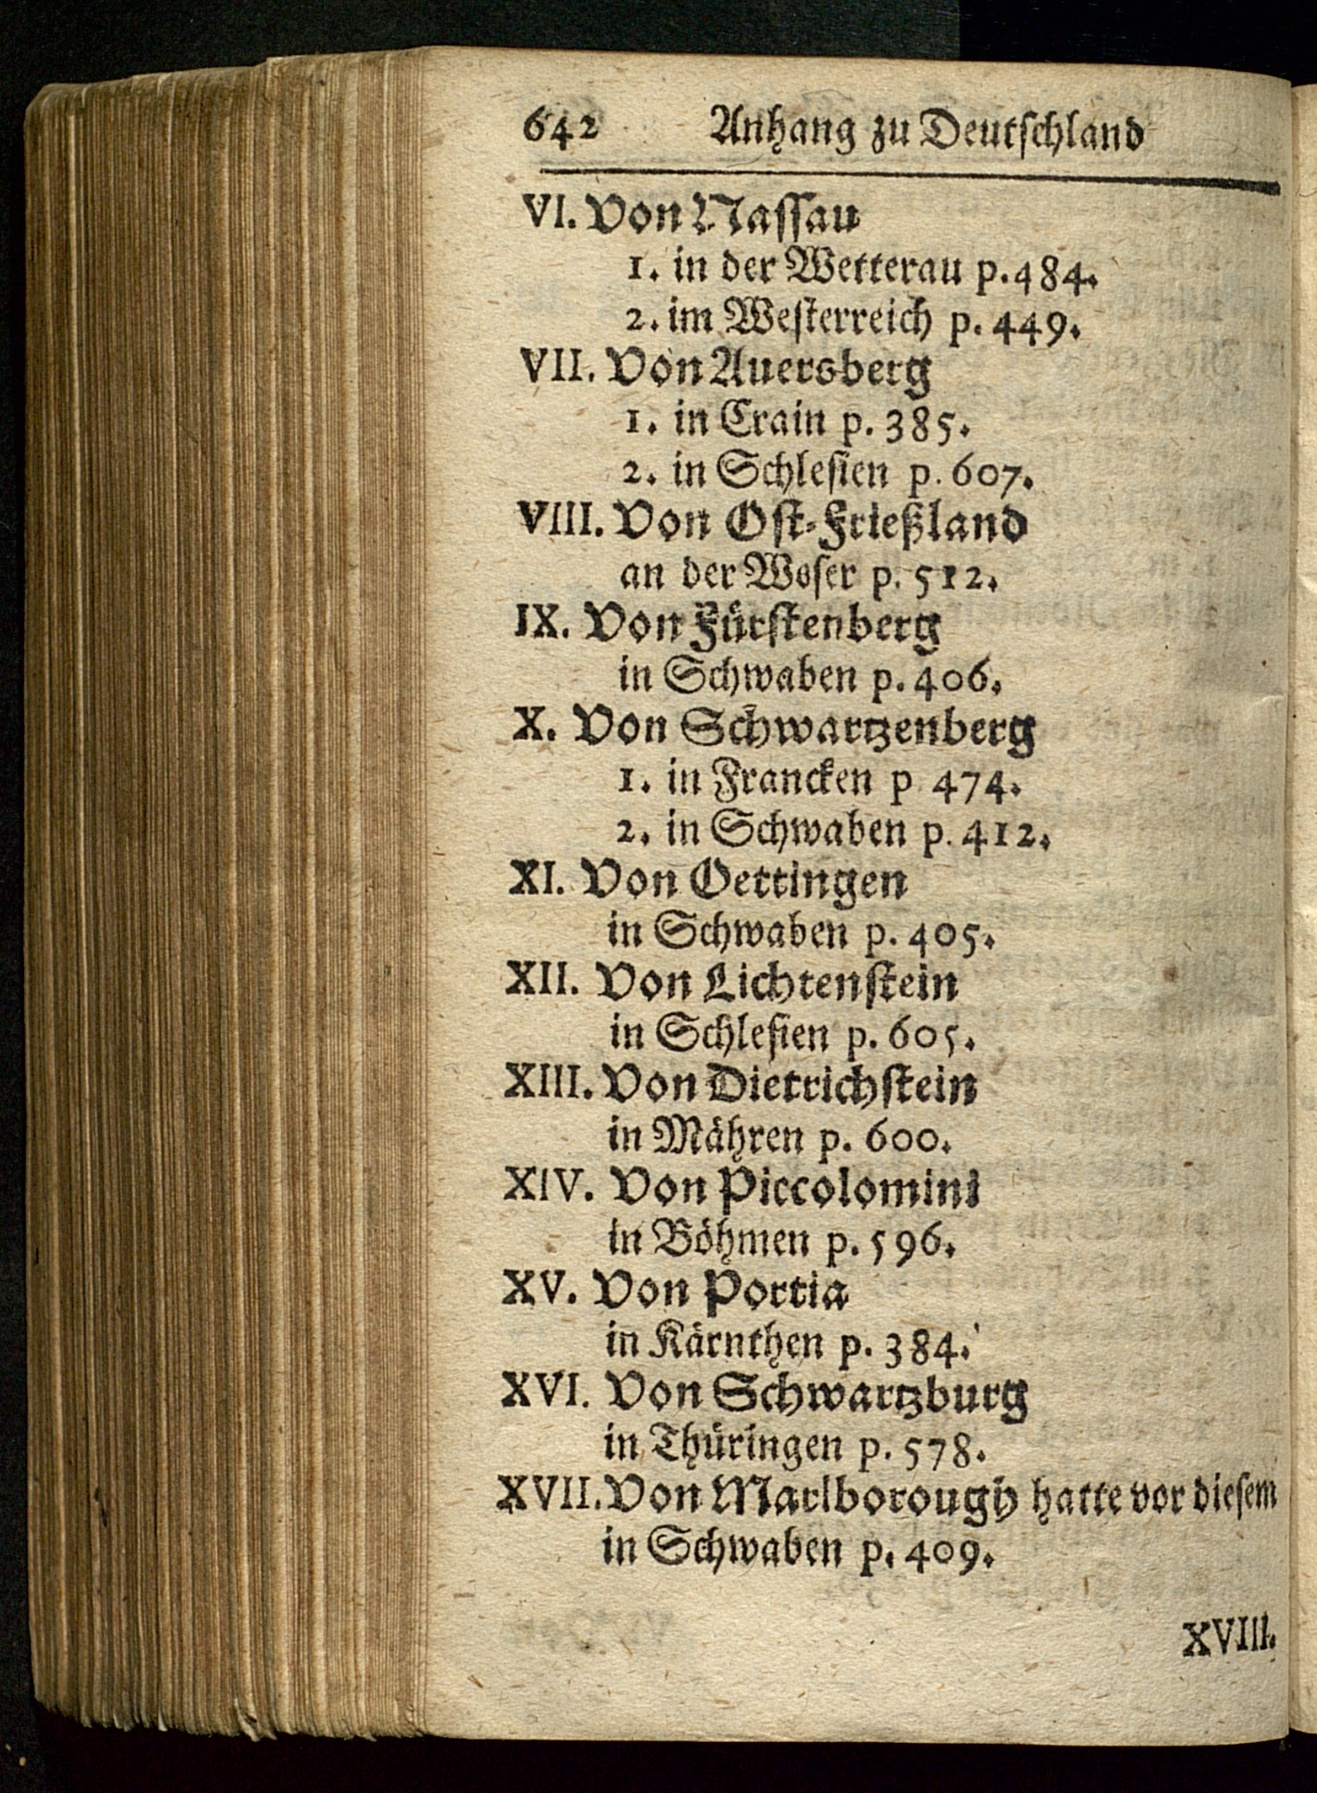 642 Anhang zu Deutschland
VI. Von Nassau
1. in der Wetterau p. 484.
2. im Westerreich p. 449.
VII. Von Auersberg
1. in Crain p. 385.
2. in Schlesien p. 607.
VIII. Von Ost-Frießland
an der Weser p. 512.
IX. Von Fürstenberg
in Schwaben p. 406.
X. Von Schwartzenberg
1. in Francken p 474.
2. in Schwaben p. 412.
XI. Von Oettingen
in Schwaben p. 405.
XII. Von Lichtenstein
in Schlesien p. 605.
XIII. Von Dietrichstein
in Mähren p. 600.
XIV. Von Piccolomini
in Böhmen p. 596.
XV. Von Portia
in Kärnthen p. 384.
XVI. Von Schwartzburg
in Thüringen p. 578.
XVII. Von Marlborough hatte vor diesem
in Schwaben p. 409.
XVIII.